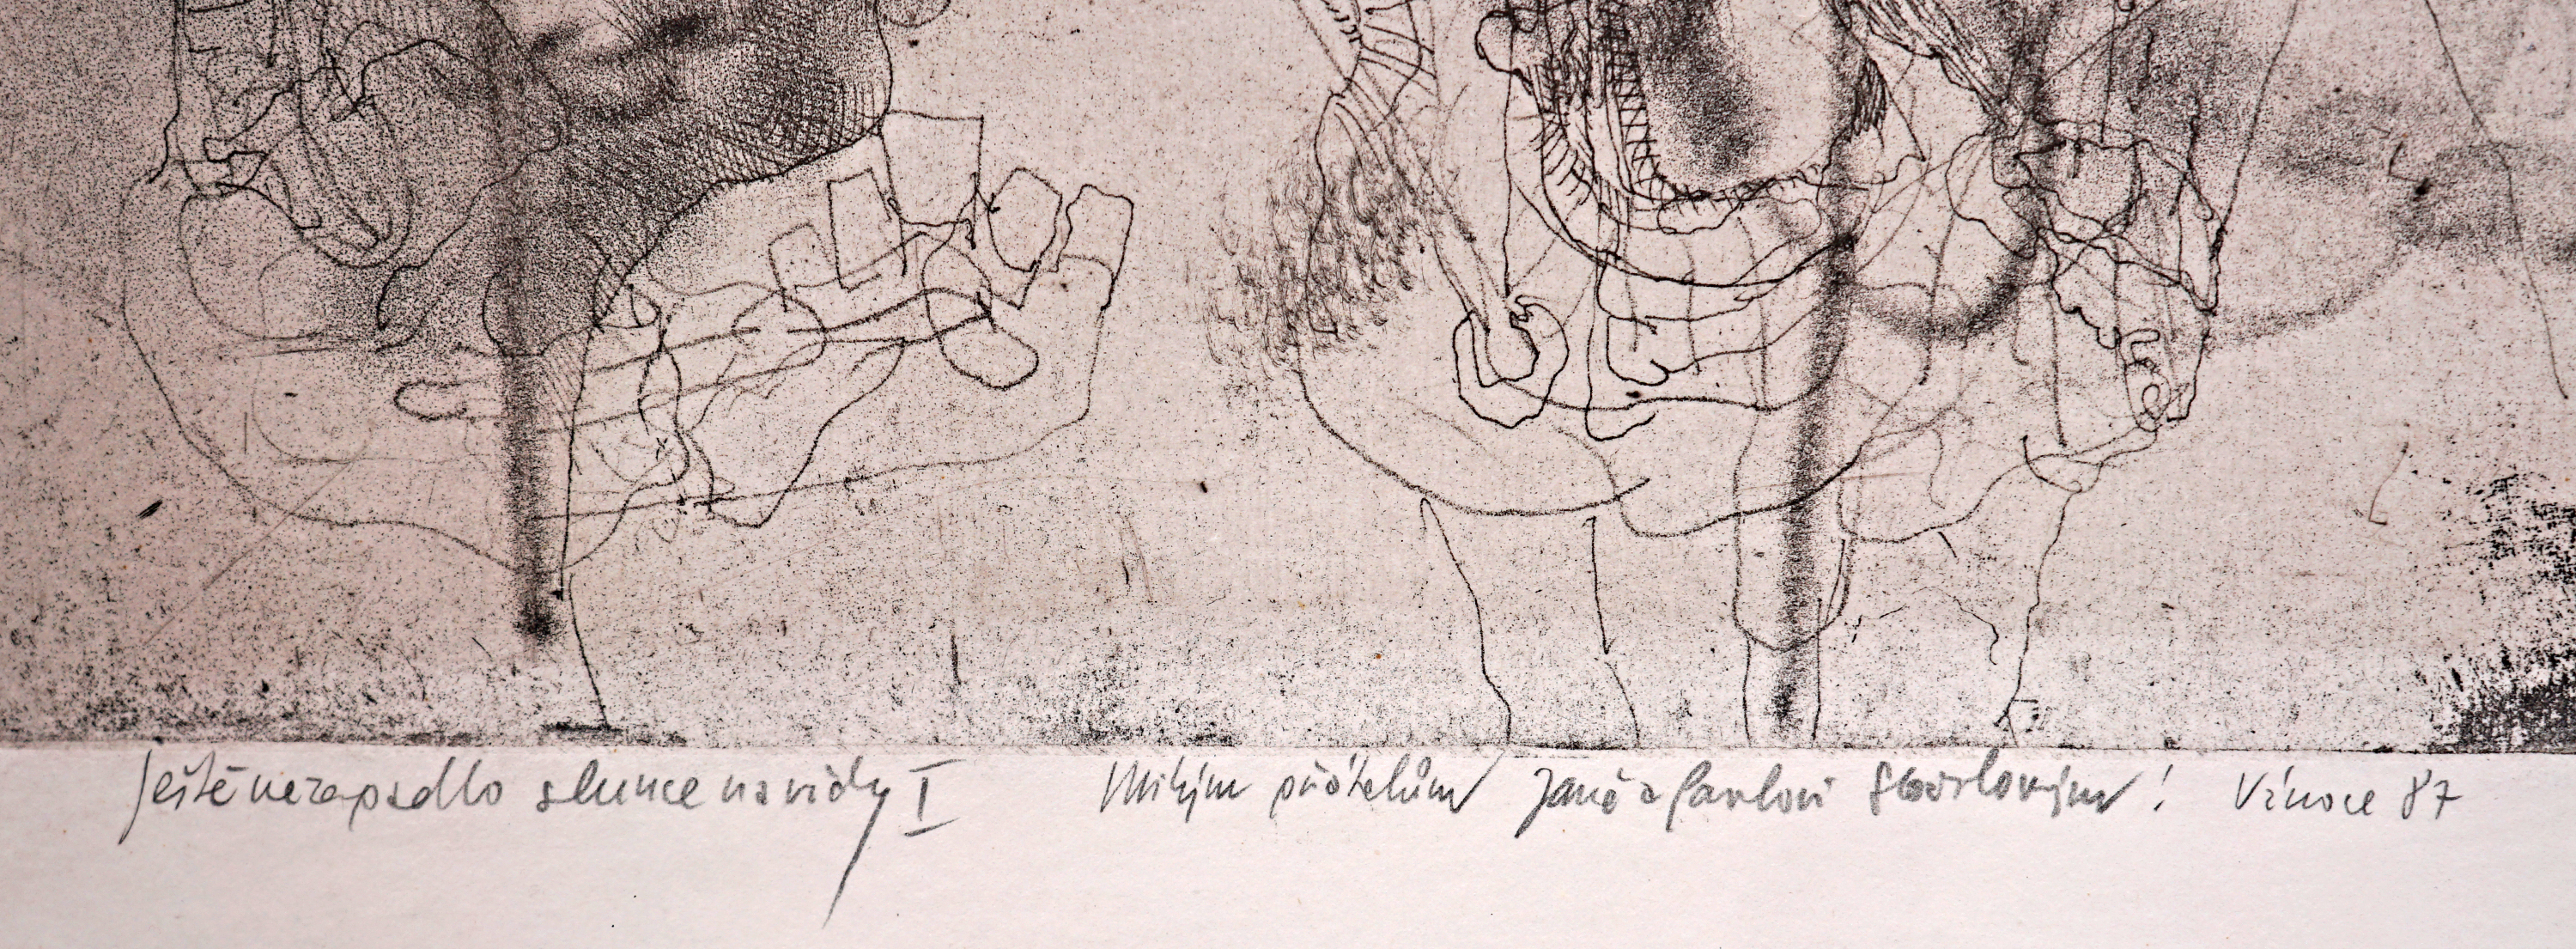 Ještě nezapadlo slunce navždy I Milým přátelům Janě a Pavlovi ! Vánoce 87